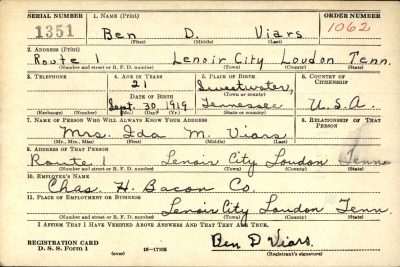 SERIAL NUMBER 1. NAME (Print) ORDER NUMBER
1351 Ben D. Viars 1062
(First) (Middle) (Last)
2. ADDRESS (Print)
Route 1 Lenoir City Loudon Tenn.
(Number and street or R. F. D. number) (Town) (County) (State)
3. TELEPHONE 4. AGE IN YEARS 5. PLACE OF BIRTH 6. COUNTRY OF CITIZENSHIP
21 Sweetwater,
DATE OF BIRTH (Town or county)
Sept. 30, 1919 Tennessee U.S.A.
(Exchange) (Number) (Mo.) (Day) (Yr.) (State or country)
7. NAME OF PERSON WHO WILL ALWAYS KNOW YOUR ADDRESS 8. RELATIONSHIP OF THAT PERSON
Mrs. Ida M. Viars
(Mr., Mrs., Miss) (First) (Middle) (Last)
9. ADDRESS OF THAT PERSON
Route 1 Lenoir City Loudon Tenn
(Number and street or R. F. D. number) (Town) (County) (State)
10. EMPLOYER'S NAME
Chas. H. Bacon Co.
11. PLACE OF EMPLOYMENT OR BUSINESS
Lenoir City Loudon Tenn.
(Number and street or R. F. D. number) (Town) (County) (State)
I AFFIRM THAT I HAVE VERIFIED ABOVE ANSWERS AND THAT THEY ARE TRUE.
REGISTRATION CARD Ben D Viars
D. S. S. Form 1 (over) 16-17105 (Registrant's signature)